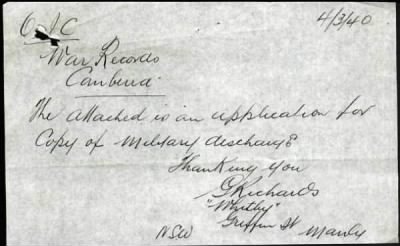 O I C
4/3/40
War Records
Canberra
The attached is an application for
Copy of Military discharge
Thanking you
G Richards
"Whitby"
Griffin St
NSW Manly